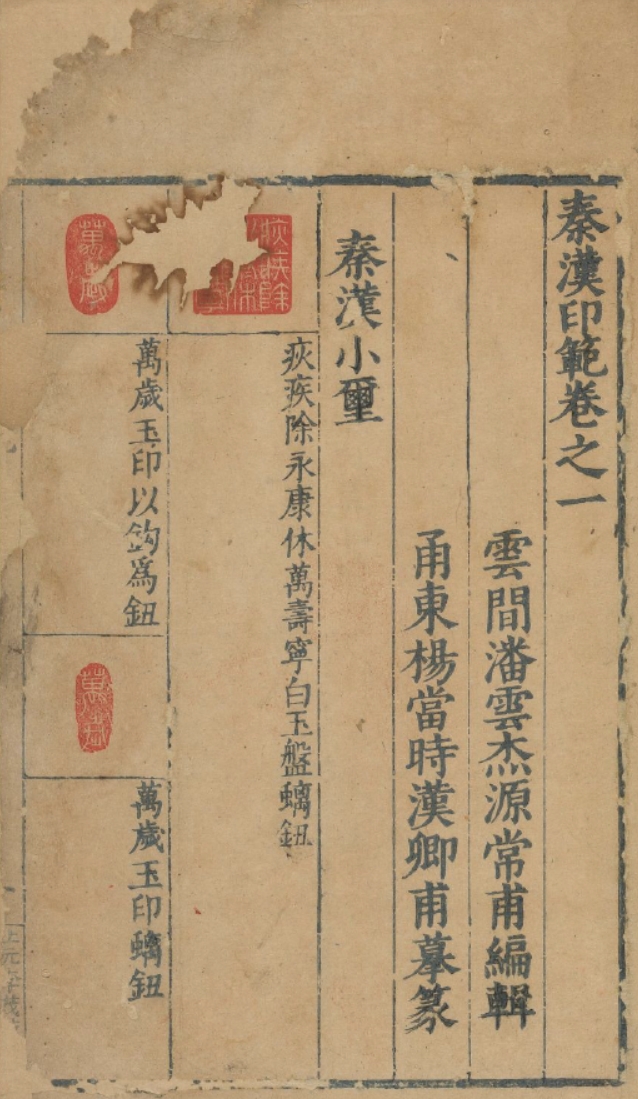 秦漢印範卷之一
雲間潘雲杰源常甫編輯
甬東楊當時漢卿甫摹篆
秦漢小璽
疢疾除
疢疾除永康休萬壽寧白玉盤螭鈕
萬歲
萬歲玉印以鈎為鈕
萬歲
萬歲玉印螭鈕